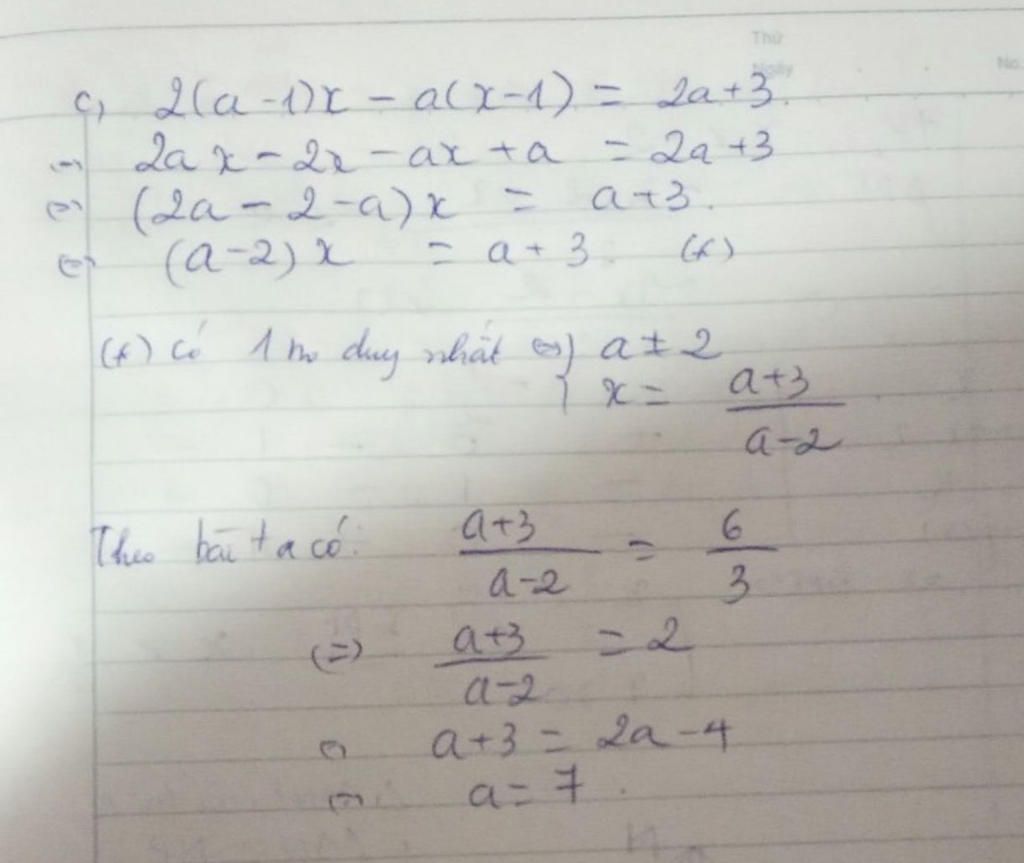 Thứ
Ngày
No.
c, 2(a-1)x - a(x-1) = 2a+3.
⇔ 2ax - 2x - ax + a = 2a+3
⇔ (2a - 2 - a)x = a+3.
⇔ (a-2)x = a+3. (*)
(*) có 1 no duy nhất ⇔ { a ≠ 2
x = \frac{a+3}{a-2}
Theo bài ta có: \frac{a+3}{a-2} = \frac{6}{3}
⇔ \frac{a+3}{a-2} = 2
⇔ a+3 = 2a-4
⇔ a = 7.